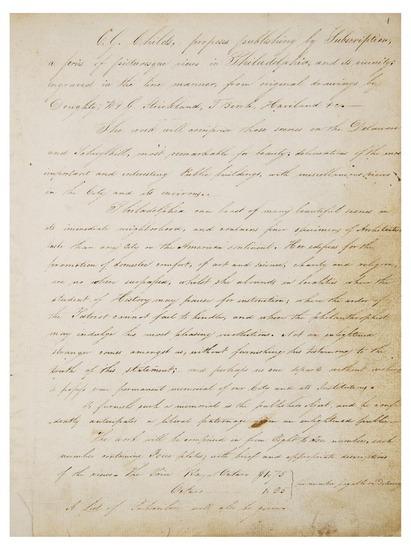 C. G. Childs, proposes publishing by Subscription,
a series of picturesque views in Philadelphia, and its vicinity;
engraved in the line manner, from original drawings by
Doughty, W & G. Strickland, T. Birch, Haviland &c.—
The work will comprise those scenes on the Delaware
and Schuylkill, most remarkable for beauty; delineations of the most
important and interesting Public buildings, with miscellaneous views
in the City and its environs.—
Philadelphia can boast of many beautiful scenes in
its immediate neighborhood, and contains finer specimens of Architecture
than any City on the American continent. Her edifices for the
promotion of domestic comfort, of art and science, charity and religion,
are no where surpassed, whilst she abounds in localities where the
student of History may pause for instruction; where the ardor of
the Patriot cannot fail to kindle, and where the philanthropist
may indulge his most pleasing recollections. Not an enlightened
stranger comes amongst us, without furnishing his testimony to the
truth of this statement; and perhaps no one departs without wishing
to possess some permanent memorial of our City and its Institutions.
To furnish such a memorial is the publishers object, and he confi-
dently anticipates a liberal patronage from an enlightened public—
The work will be comprised in from Eight to Ten numbers, each
number containing Four plates; with brief and appropriate descriptions
of the views. The Price Royal Octavo $1,75
Octavo 1.25
per number payable on delivery
A List of Subscribers will also be given.